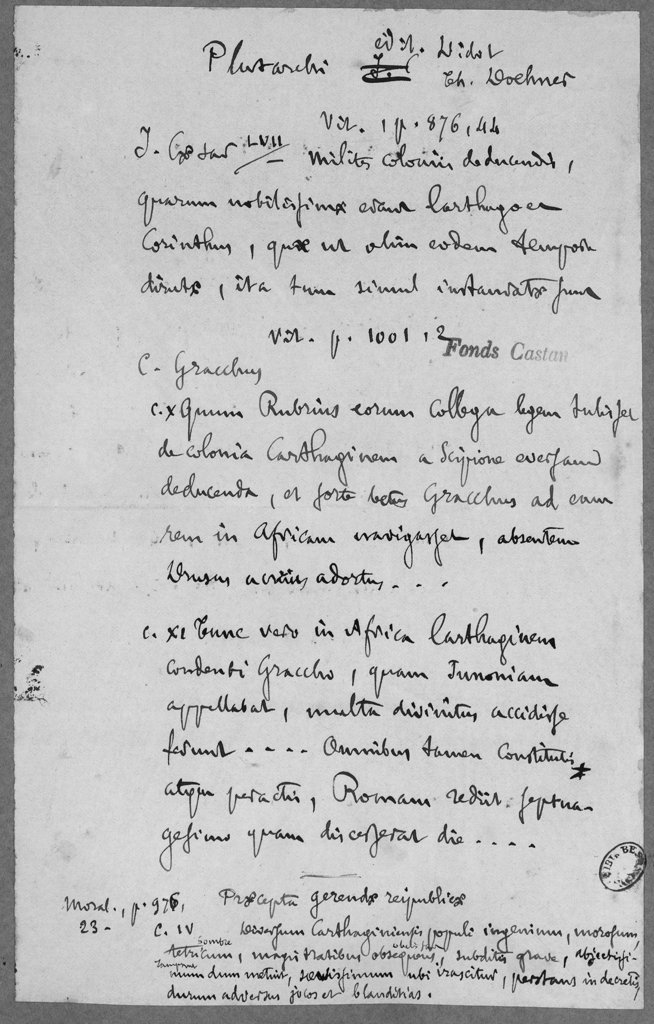 Plutarchi edit. Didot
Th. Doehner
Vit. 1 p. 876, 44
J. Cæsar LVII milites coloniis deducendis,
quarum nobilissimæ erant Carthago et
Corinthus, quæ ut olim eodem tempore
dirutæ, ita tum simul instauratæ sunt
Vit. p. 1001, 2
Fonds Castan
C. Gracchus
c. x Quum Rubrius eorum collega legem tulisset
de colonia Carthaginem a Scipione eversam
deducenda, et forte Gracchus ad eam
rem in Africam navigasset, absentem
Drusus acrius adortus . . .
c. XI Tunc vero in Africa Carthaginem
condenti Graccho, quam Junoniam
appellabat, multa divinitus accidisse
ferunt . . . . Omnibus tamen constitutis
atque peractis, Romam rediit septua-
gesimo quam discesserat die . . . .
Moral., p. 976, Præcepta gerendæ reipublicæ
23 -
c. IV Diversum Carthaginiensis populi ingenium, morosum,
sombre
tetricum, magistratibus obsequens, subditis grave, abjectissi-
mum dum metuit, sævissimum ubi irascitur, perstans in decretis,
durum adversus jocos et blanditias.